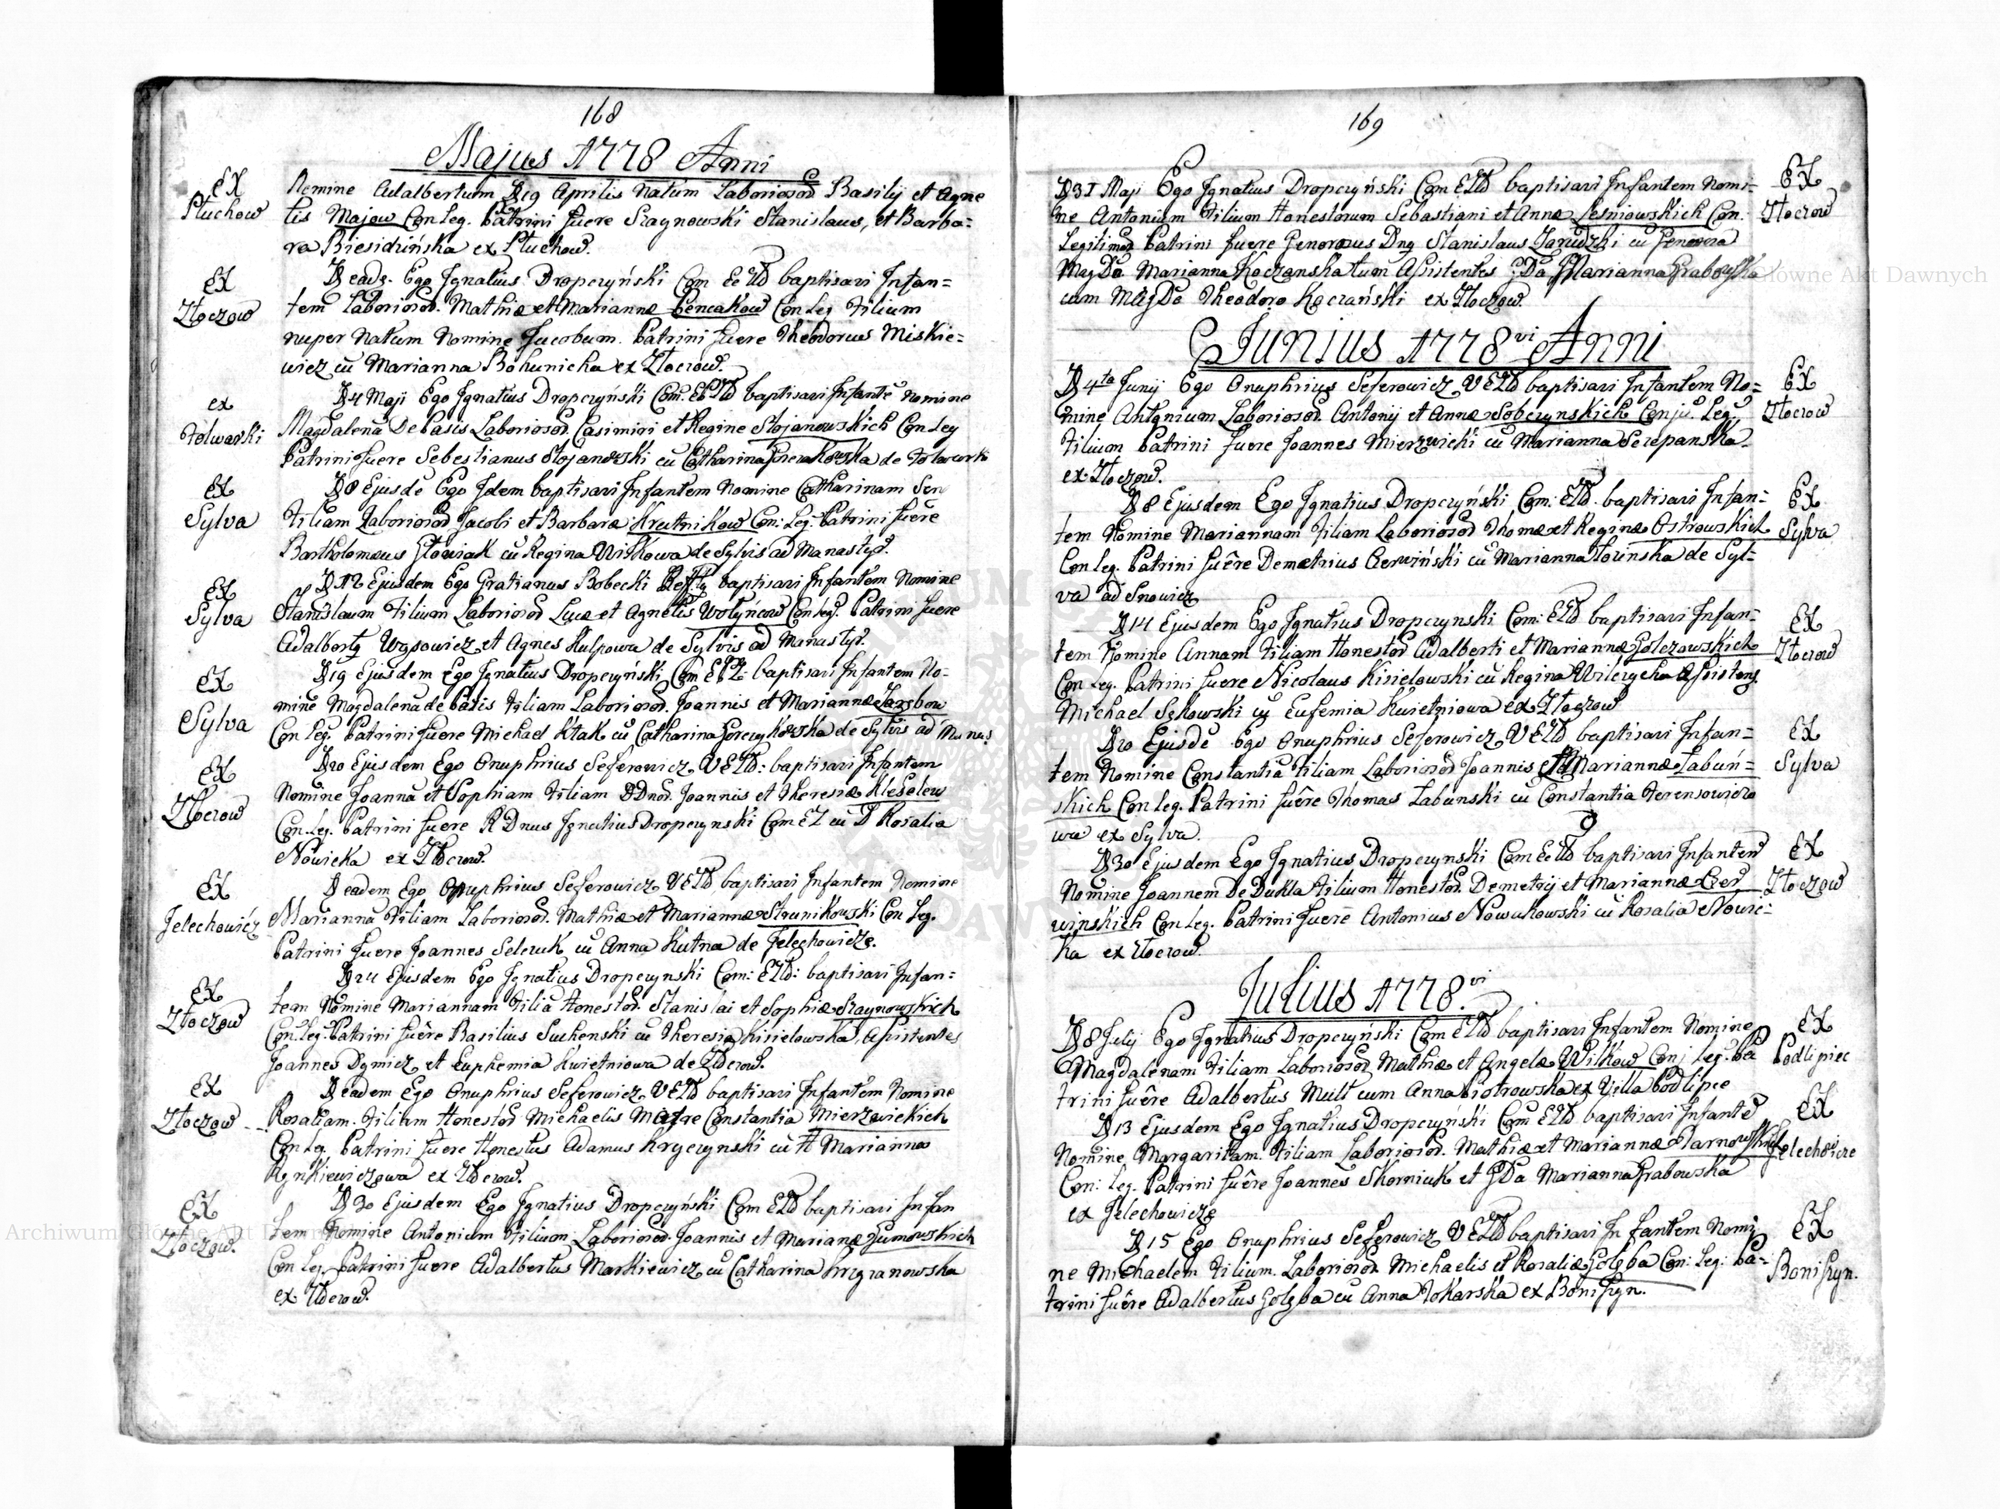 168
Majus 1778 Anni
Ex
Płuchow
Nomine Adalbertum D 19 Aprilis Natum Laboriosod Basilij et Agne
tis Majow Con Leg. Patrini fuere Szagnowski Stanislaus, et Barba-
ra Biesidzińska ex Płuchow.
Ex
Złoczow
D eadē. Ego Ignatius Dropczyński Com EZłd baptisavi Infan=
tem Laboriosod. Mathiæ et Mariannæ Con Leg Filium
nuper Natum Nomine Jacobum. Patrini fuere Theodorus Miskie=
wicz cū Marianna Bohunicha ex Złoczow.
ex
Folwarki
D 4 Maji Ego Ignatius Dropczyński Com: EZłd baptisavi Infantē Nomine
Magdalenā De Pasis Laboriosod. Casimiri et Regine Stojanowskich Con Leg
Patrini fuere Sebestianus Stojanowski cū Catharina de Folwarki
Ex
Sylva
D 8 Ejusdē Ego Idem baptisavi Infantem Nomine Catharinam Sen
Filiam Laboriosod Jacobi et Barbaræ Krutnikow Con: Leg: Patrini fuere
Bartholomæus Głowiak cū Regina Wilkowa de Sylvis ad Manastyr.
Ex
Sylva
D 12 Ejusdem Ego Gratianus Bobecki baptisavi Infantem Nomine
Stanislaum Filium Laboriosod Lucæ et Agnetis Wołyńcow Con Leg. Patrini fuere
Adalbertg Wąsowicz et Agnes Kulpowa de Sylvis ad Manastyr.
Ex
Sylva
D 19 Ejusdem Ego Ignatius Dropczyński Com EZł: baptisavi Infantem No-
mine Magdalenā de Pasis Filiam Laboriosod. Joannis et Mariannæ Jarzbow
Con Leg. Patrini fuere Michael Ktak cū Catharina Gorczykowska de Sylvis ad Manas.
Ex
Złoczow
D 20 Ejusdem Ego Onuphrius Seferowicz VEZłd: baptisavi Infantem
Nomine Joannā et Sophiam Filiam DDnod. Joannis et Theresiæ Kleselew
Con Leg. Patrini fuere R Dnus Ignatius Dropczynski Com EZ cū D Rosalia
Nowicka ex Złoczow.
Ex
Jelechowicz
D eadem Ego Onuphrius Seferowicz VEZłd baptisavi Infantem Nomine
Mariannā Filiam Laboriosod. Mathiæ et Mariannæ Strunikowski Con Leg.
Patrini fuere Joannes Selewk cū Anna Kutna de Jelechowicze.
Ex
Złoczow
D 24 Ejusdem Ego Ignatius Dropczynski Com: EZłd: baptisavi Infan=
tem Nomine Mariannam Filiā Honestod. Stanislai et Sophiæ Szaynowskich
Con. Leg. Patrini fuêre Basilius Suchenski cū Theresia Kisielowska, Assistentes
Joannes Dymicz et Euphemia Kwietniowa de Złoczow.
Ex
Złoczow
D eadem Ego Onuphrius Seferowicz VEZłd baptisavi Infantem Nomine
Rosaliam. Filiam Honestod Michaelis Matre Constantia Mierzwickich
Con Leg. Patrini fuere Honestus Adamus Kryczynski cū H Marianna
Rynkiewiczowa ex Złoczow.
Ex
Złoczow.
D 30 Ejusdem Ego Ignatius Dropczyński Com EZłd baptisavi Infan
tem Nomine Antonium Filium Laboriosod. Joannis et Marianæ Gumowskich
Con Leg Patrini fuere Adalbertus Markiewicz cū Catharina Krzyzanowska
ex Złoczow.
169
D 31 Maji Ego Ignatius Dropczyński Com EZłd baptisavi Infantem Nomi=
ne Antonium Filium Honestorum Sebastiani et Annæ Lesniowskich Con:
Legitimod Patrini fuere Generosus Dng Stanislaus Zarudzki cū Generosa
MagDa Marianna Koczanska tum Assistentes GDa Marianna Grabowska
cum MagDo Theodoro Koczański ex Złoczow.
Ex
Złoczow
Junius 1778vi Anni
D 4ta Junij Ego Onuphrius Seferowicz VEZłd baptisavi Infantem No=
mine Antonium Laboriosod. Antonij et Annæ Sobczynskich Conju: Leg:
Filium Patrini fuere Joannes Mierzwicki cū Marianna Sczepanska
ex Złoczow.
Ex
Złoczow
D 8 Ejusdem Ego Ignatius Dropczyński Com: EZłd. baptisavi Infan=
tem Nomine Mariannam Filiam Laboriosod Thomæ et Reginæ Ostrowskich
Con Leg. Patrini fuêre Demetrius Czerwiński cū Marianna Łosinska de Syl-
va ad Snowicz
Ex
Sylva
D 14 Ejusdem Ego Ignatius Dropczynski Com: EZłd baptisavi Infan=
tem Nomine Annam Filiam Honestod Adalberti et Mariannæ Golczowskich
Con Leg. Patrini fuere Nicolaus Kisielowski cū Regina Wilczycha Assistens
Michael Sękowski cū Eufemia Kwietniowa ex Złoczow
Ex
Złoczow
D 20 Ejusdē Ego Onuphrius Seferowicz VEZłd baptisavi Infan=
tem Nomine Constantiā Filiam Laboriosod Joannis et Mariannæ Łabuń=
skich Con Leg. Patrini fuêre Thomas Łabunski cū Constantia Ferensowicz
wa ex Sylva.
Ex
Sylva
D 30 Ejusdem Ego Ignatius Dropczynski Com EZłd baptisavi Infantem
Nomine Joannem De Dukla Filium Honestod. Demetrij et Mariannæ Czer
winskich Con Leg. Patrini fuere Antonius Nowakowski cū Rosalia Nowic=
ka ex Złoczow.
Ex
Złoczow
Julius 1778.vi
D 8 Julij Ego Ignatius Dropczyński Com EZłd baptisavi Infantem Nomine
Magdalenam Filiam Laboriosod Mathiæ et Angelæ Wilkow Conj Leg. Pa
trini fuêre Adalbertus Mult cum Anna Piotrowska ex Villa Podlipce
Ex
Podlipiec
D 13 Ejusdem Ego Ignatius Dropczyński Com EZłd baptisavi Infantē
Nomine Margaritam. Filiam Laboriosod. Mathiæ et Mariannæ Tarnowskich
Con: Leg. Patrini fuêre Joannes Skorniuk et GDa Marianna Grabowska
ex Jelechowicze
Ex
Jelechowicze
D 15 Ego Onuphrius Seferowicz VEZłd baptisavi Infantem Nomi
ne Michaelem Filium. Laboriosod Michaelis et Rosaliæ Gołęba Con: Leg: Pa=
trini fuêre Adalbertus Gołęba cū Anna Tokarska ex Boniszyn.
Ex
Boniszyn.
Archiwum Główne Akt Dawnych